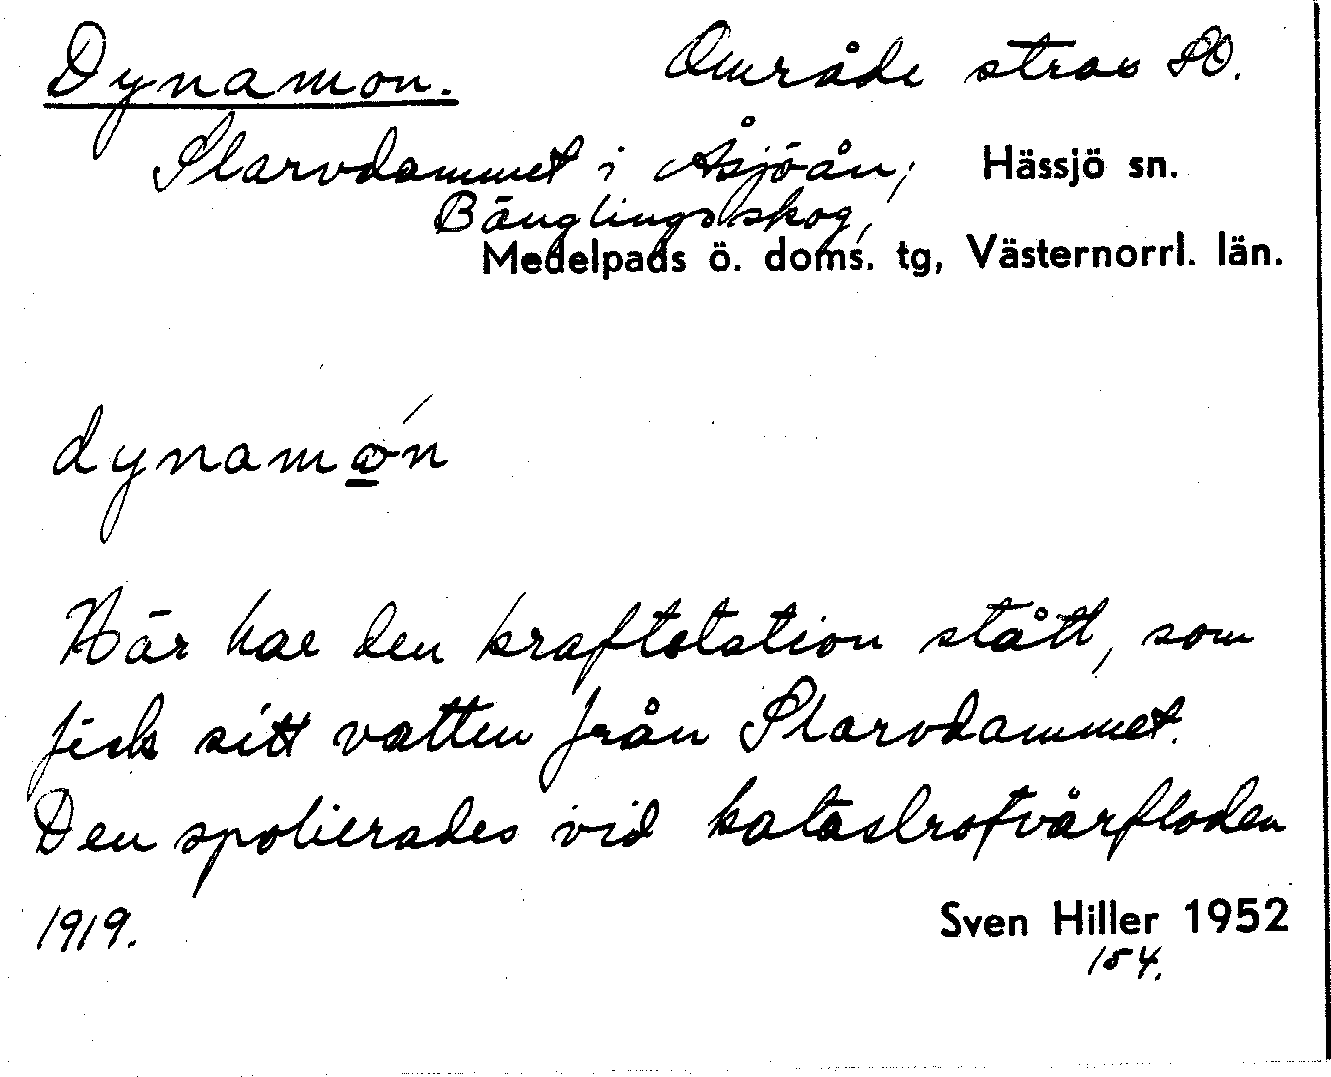 Dynamon. Område strax SO.
Slarvdammet i Åsjöån, Hässjö sn.
Bänglingsskog,
Medelpads ö. doms. tg, Västernorrl. län.
dynamo´n
Här har den kraftstation stått, som
fick sitt vatten från Slarvdammet.
Den spolierades vid katastrofvårfloden
1919. Sven Hiller 1952
154.